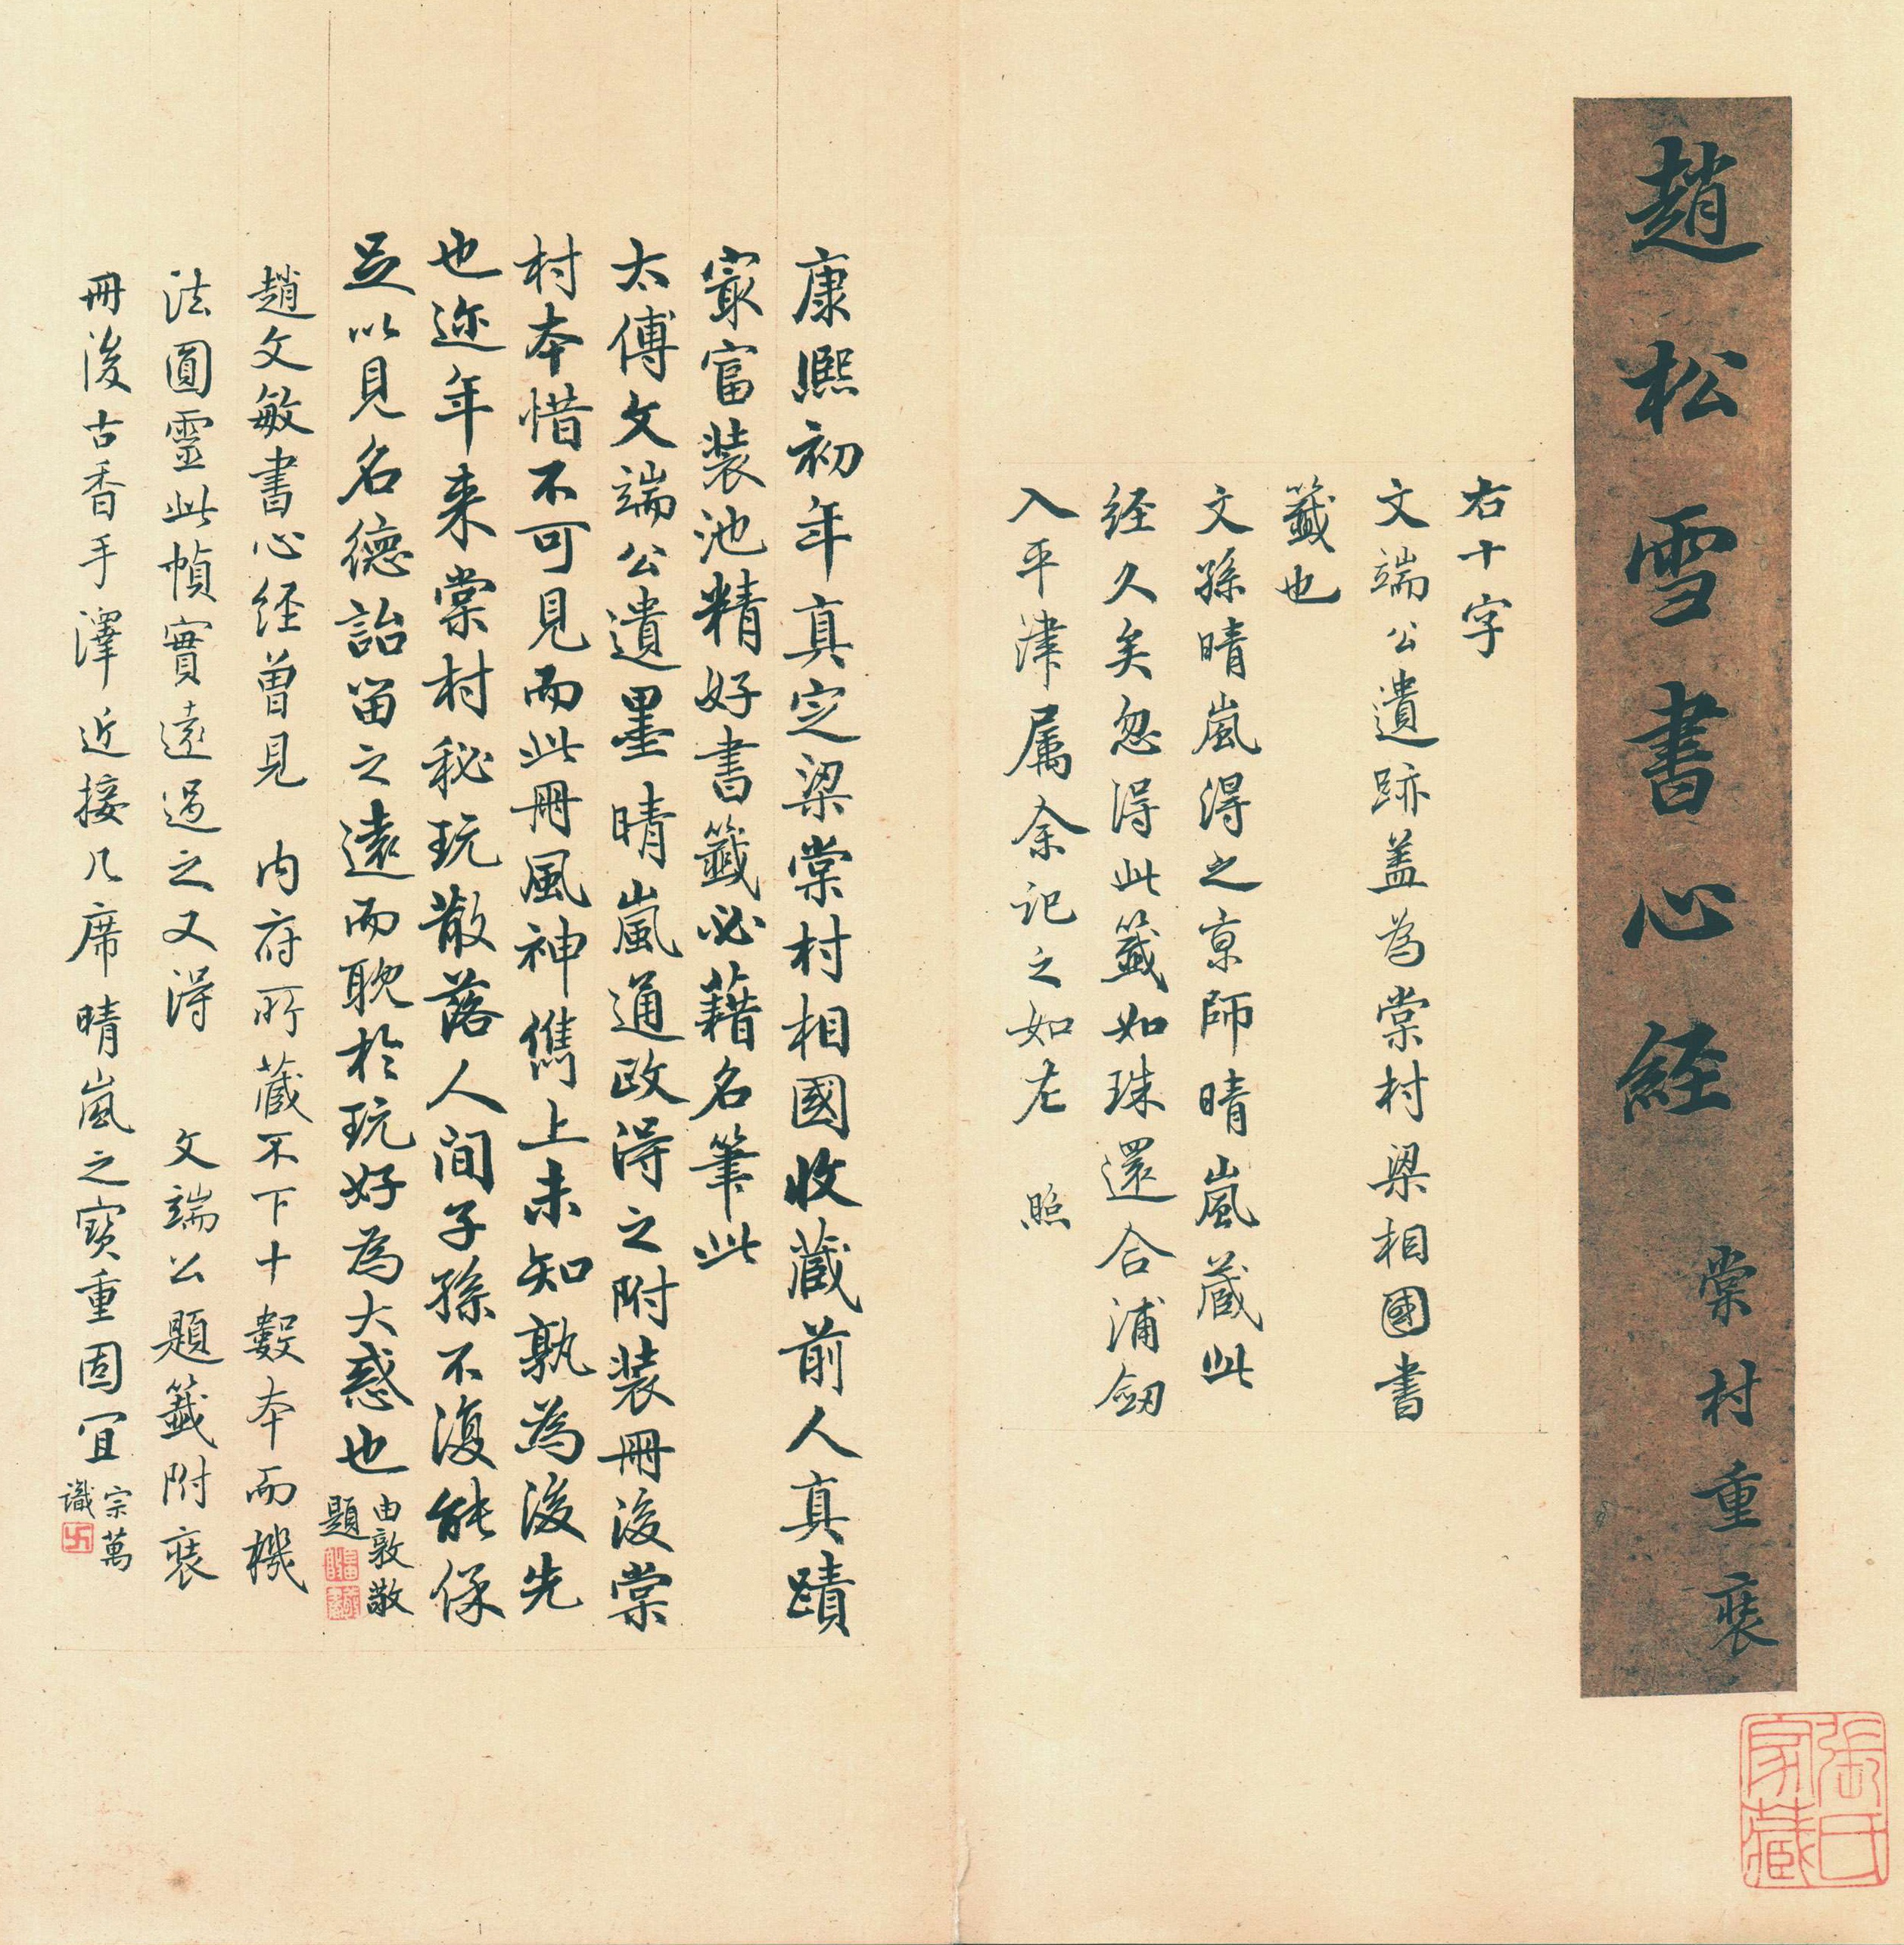 趙松雪書心経
棠村重裝
右十字
文端公遺跡盖為棠村梁相國書
籤也
文孫晴嵐得之京師晴嵐蔵此
経久矣忽得此籤如珠還合浦劒
入平津屬余記之如左 照
康熙初年真定梁棠村相國收蔵前人真蹟
㝡富装池精好書籤必藉名筆此
太傅文端公遺墨晴嵐通政得之附装冊後棠
村本惜不可見而此冊風神儁上未知孰為後先
也迩年来棠村秘玩散落人间子孫不復能保
足以見名德詒留之遠而耽於玩好為大惑也
由敦敬
題
趙文敏書心经曾見 内府所蔵不下十數本而機
法圓靈此幀實遠過之又得 文端公題籤附裝
冊後古香手澤近接几席晴嵐之寳重固宜
宗萬
識
卍
張氏
家藏